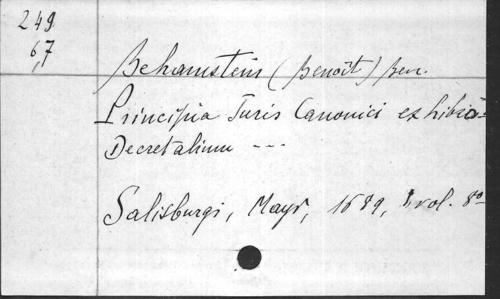 249
6,7
Behamstein (Benoît)
Principia Juris Canonici ex libris
Decretalium ---
Salisburgi, Mayr, 1689, 1 vol. 8°